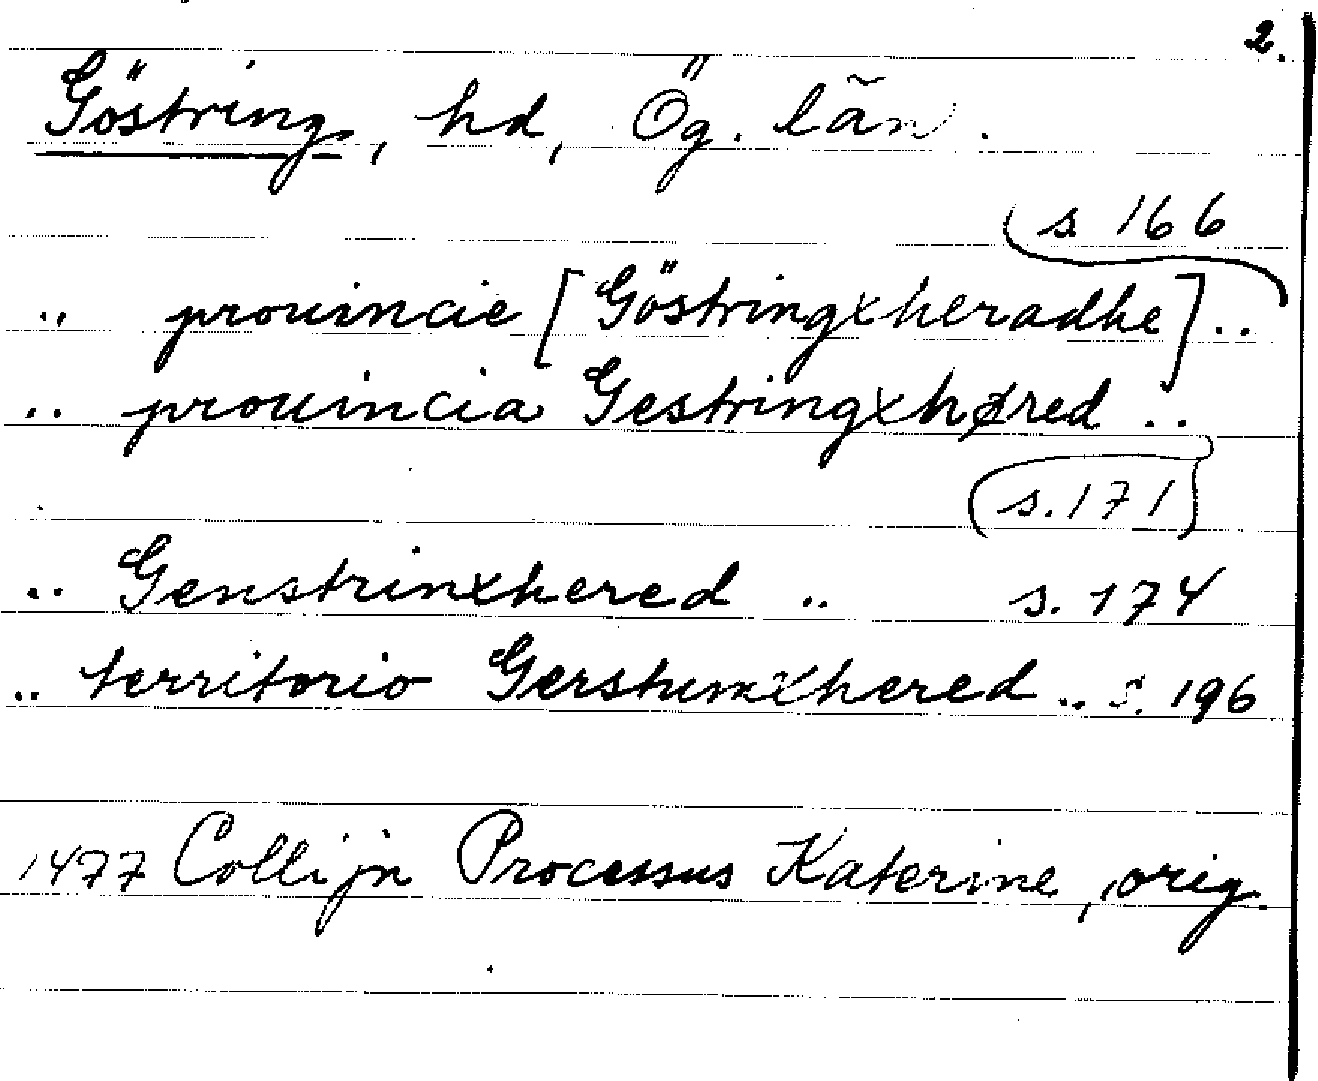 2.
Göstring, hd, Ög. län.
s 166
.. prouincie [Göstringxheradhe] ..
.. prouincia Gestringxhøred ..
s. 171
.. Genstrinxhered .. s. 174
.. territorio Gerstumxhered .. s. 196
1477 Collijn Processus Katerine, orig.